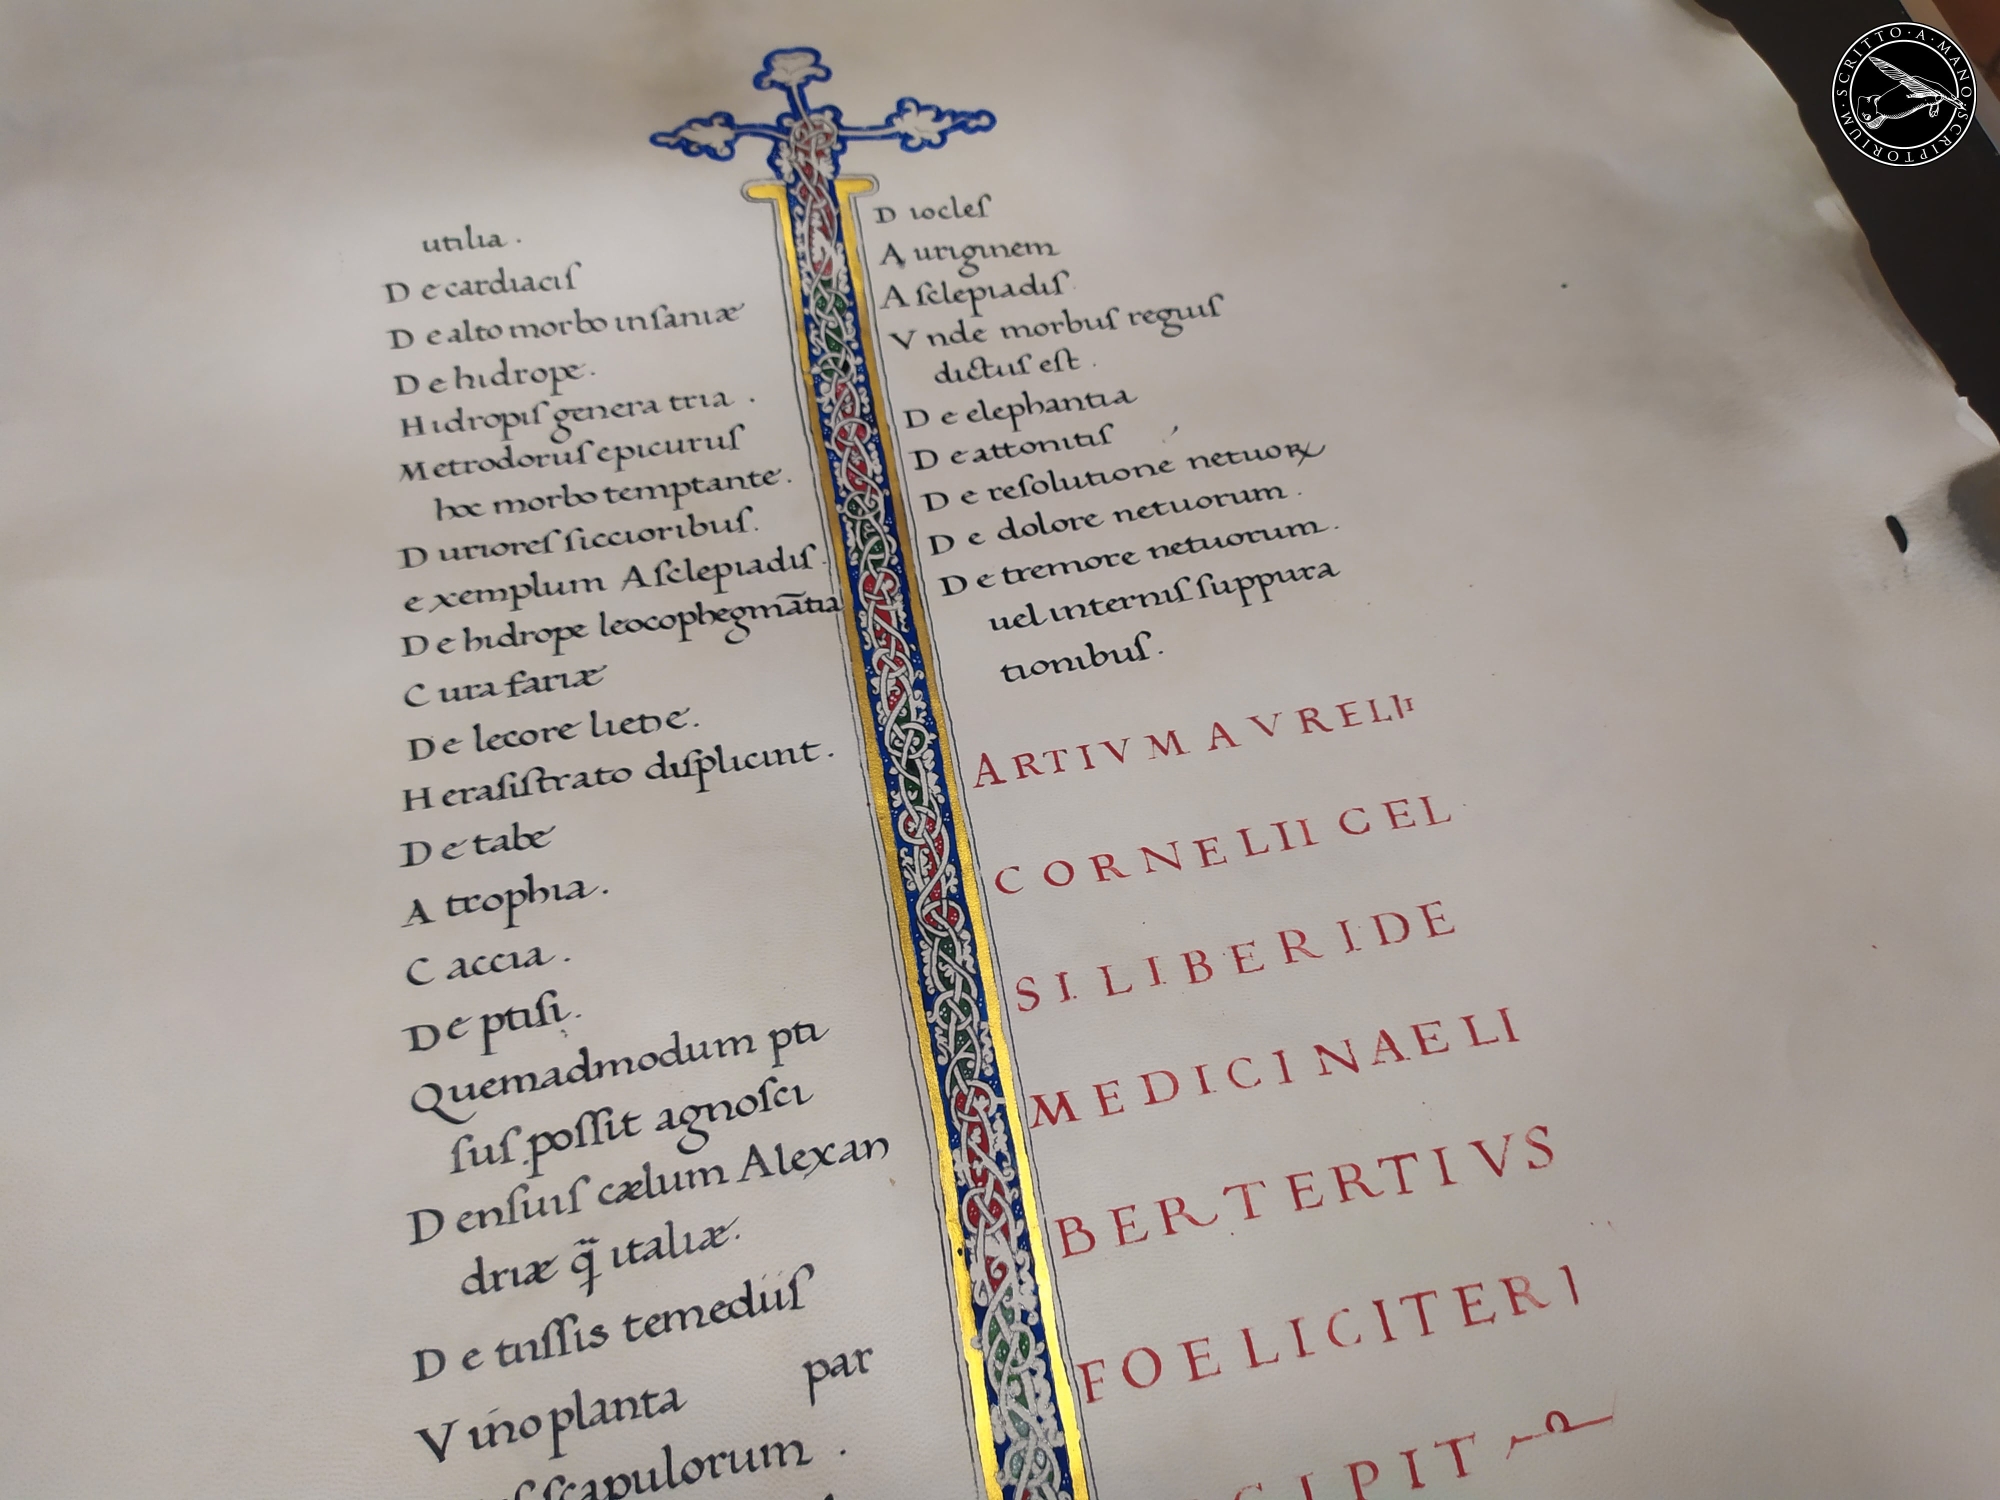 utilia .
D e cardiaciſ
D e alto morbo inſaniæ
D e hidrope .
H idropiſ genera tria .
M etrodoruſ epicuruſ
hoc morbo temptante .
D urioreſ ſiccioribuſ .
e xemplum Aſclepiadiſ .
D e hidrope leocophegmātia
C ura fariæ
D e lecore liene .
H eraſiſtrato diſplicint .
D e tabe
A trophia .
C accia .
D e ptiſi .
Quemadmodum pti
ſuſ poſſit agnoſci
D enſuiſ cælum Alexan
driæ q̃ italiæ .
D e tuſſis temediiſ
V ino planta par
ſcapulorum .
D iocleſ
A uriginem
A ſclepiadiſ
V nde morbuſ reguiſ
dictuſ eſt .
D e elephantia
D e attonitiſ
D e reſolutione netuoꝝ
D e dolore netuorum .
D e tremore netuorum .
uel interniſ ſuppura
tionibuſ .
ARTIVM AVRELII
CORNELII CEL
SI. LIBER I DE
MEDICINAE LI
BER TERTIVS
FOELICITER I
CIPIT
SCRITTO · A · MANO · SCRIPTORIUM ·